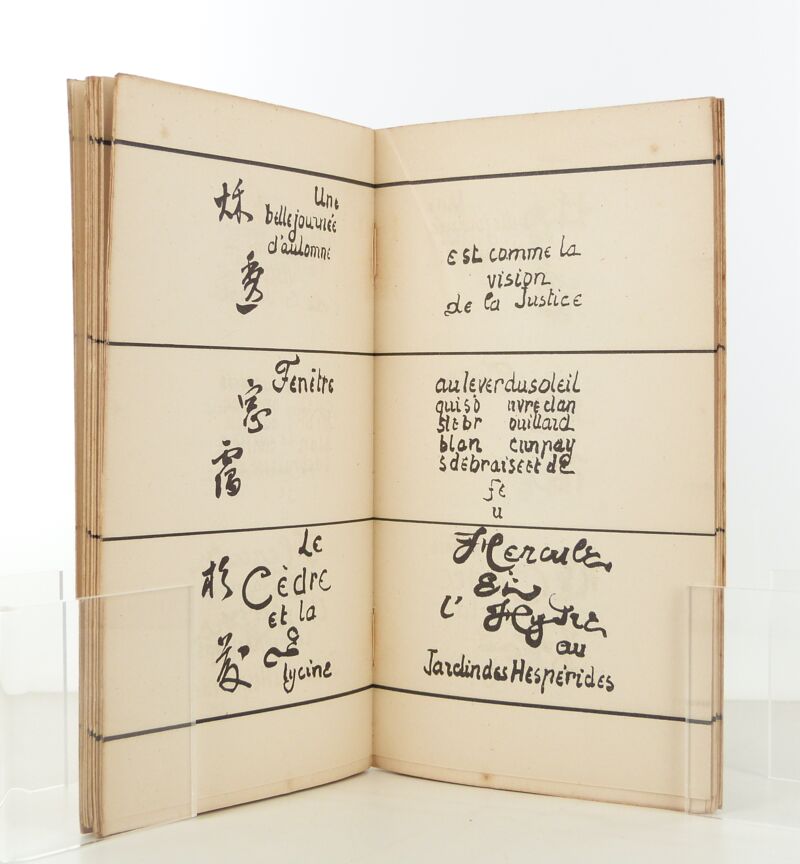 秋
Une
belle journée
d'automne
est comme la
vision
de la Justice
窓
霧
Fenêtre
auleverdusoleil
quiso uvredan
slebr ouillard
blan cunpay
sdebraiseetde
fe
u
杉
Le
Cèdre
et la
G
lycine
Hercule
Et
l' Hydre
au
JardindesHespérides